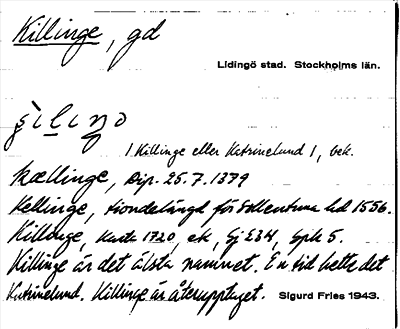 Killinge, gd
Lidingö stad. Stockholms län.
1 Killinge eller Katrinelund 1, bek.
Kællinge, Dip. 25.7.1379
Kellinge, tiondelängd för Sollentuna hd 1556.
Killinge, karta 1720, ek,
Killinge är det älsta namnet. En tid hette det
Katrinelund. Killinge är återupptaget. Sigurd Fries 1943.